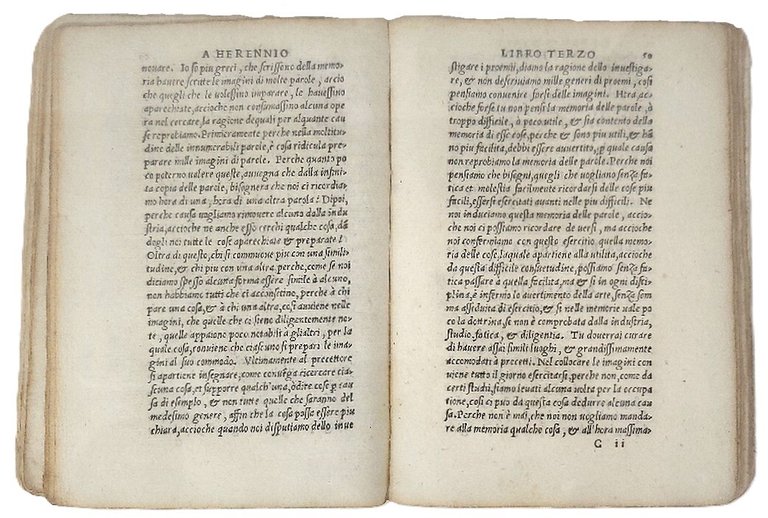 A HERENNIO
nouare. Io sò piu greci, che scrissono della memo-
ria hauere scritte le imagini di molte parole, accio
che quegli che le volessino imparare, le hauessino
aparechiate, accioche non consumassino alcuna ope
ra nel cercare, la ragione dequali per alquante cau
se reprobiamo. Primieramente perche nella moltitu-
dine delle innumerabili parole, è cosa ridicula pre-
parare mille imagini di parole. Perche quanto po
co poterno valere queste, auuegna che dalla infini-
ta copia delle parole, bisognera che noi ci ricordia-
mo hora di una, hora di una altra parola? Dipoi,
perche causa vogliamo rimouere alcuno dalla indu
stria, accioche ne anche esso cerchi qualche cosa, dã
dogli noi tutte le cose aparechiate & preparate?
Oltra di questo, chi si commoue piu con una simili
tudine, & chi piu con una altra. perche, come se noi
diciamo spesso alcuna forma essere simile à alcuno,
non habbiamo tutti che ci aconsetino, perche à chi
pare una cosa, & à chi una altra, cosi auuiene nelle
imagini, che quelle che ci sieno diligentemente no-
te, quelle appaiono poco notabili à gli altri, per la
quale cosa, conuiene che ciascuno si prepari le ima
gini al suo commodo. Vltimamente al precettore
si apartiene insegnare, come conuega ricercare cia-
scuna cosa, et sapporre qualch' una, ò dire cose p cau
sa di esempio, & non tutte quelle che saranno del
medesimo genere, affin che la cosa possa essere piu
chiara, accioche quando noi disputiamo dello inue
LIBRO TERZO 50
stigare i proemii, diamo la ragione dello inuestiga-
re, & non descriuiamo mille generi di proemi, cosi
pensiamo conuenire farsi delle imagini. Hora, ac-
cioche forse tu non pensi la memoria delle parole, ò
troppo difficile, ò poco utile, & sia contento della
memoria di esse cose, perche & sono piu utili, & hã
no piu facilita, debbi essere auuertito, p quale causa
non reprobiamo la memoria delle parole. Perche noi
pensiamo che bisogni, quegli che vogliano senza fa
tica et molestia facilmente ricordarsi delle cose piu
facili, essersi esercitati auanti nelle piu difficili. Ne
noi induciamo questa memoria delle parole, accio-
che noi ci possiamo ricordare de uersi, ma accioche
noi confermiamo con questo esercitio quella memo-
ria delle cose, la quale apartiene alla utilità, accioche
da questa difficile consuetudine, possiamo senza fa-
tica passare à quella facilita, ma & si in ogni disci-
plina, è infermo lo auertimento della arte, senza som
ma assiduita di esercitio, & si nelle memorie vale po
co la dottrina, se non è comprobata dalla industria,
studio, fatica, & diligentia. Tu douerrai curare
di hauere assai simili luoghi, & grandissimamente
accomodati à precetti. Nel collocare le imagini con
uiene tutto il giorno esercitarsi, perche non, come da
certi studi, siamo leuati alcuna volta per la occupa
tione, cosi ci puo da questa cosa dedurre alcuna cau
sa. Perche non è mai, che noi non vogliamo manda-
re alla memoria qualche cosa, & all'hora massima-
G ii